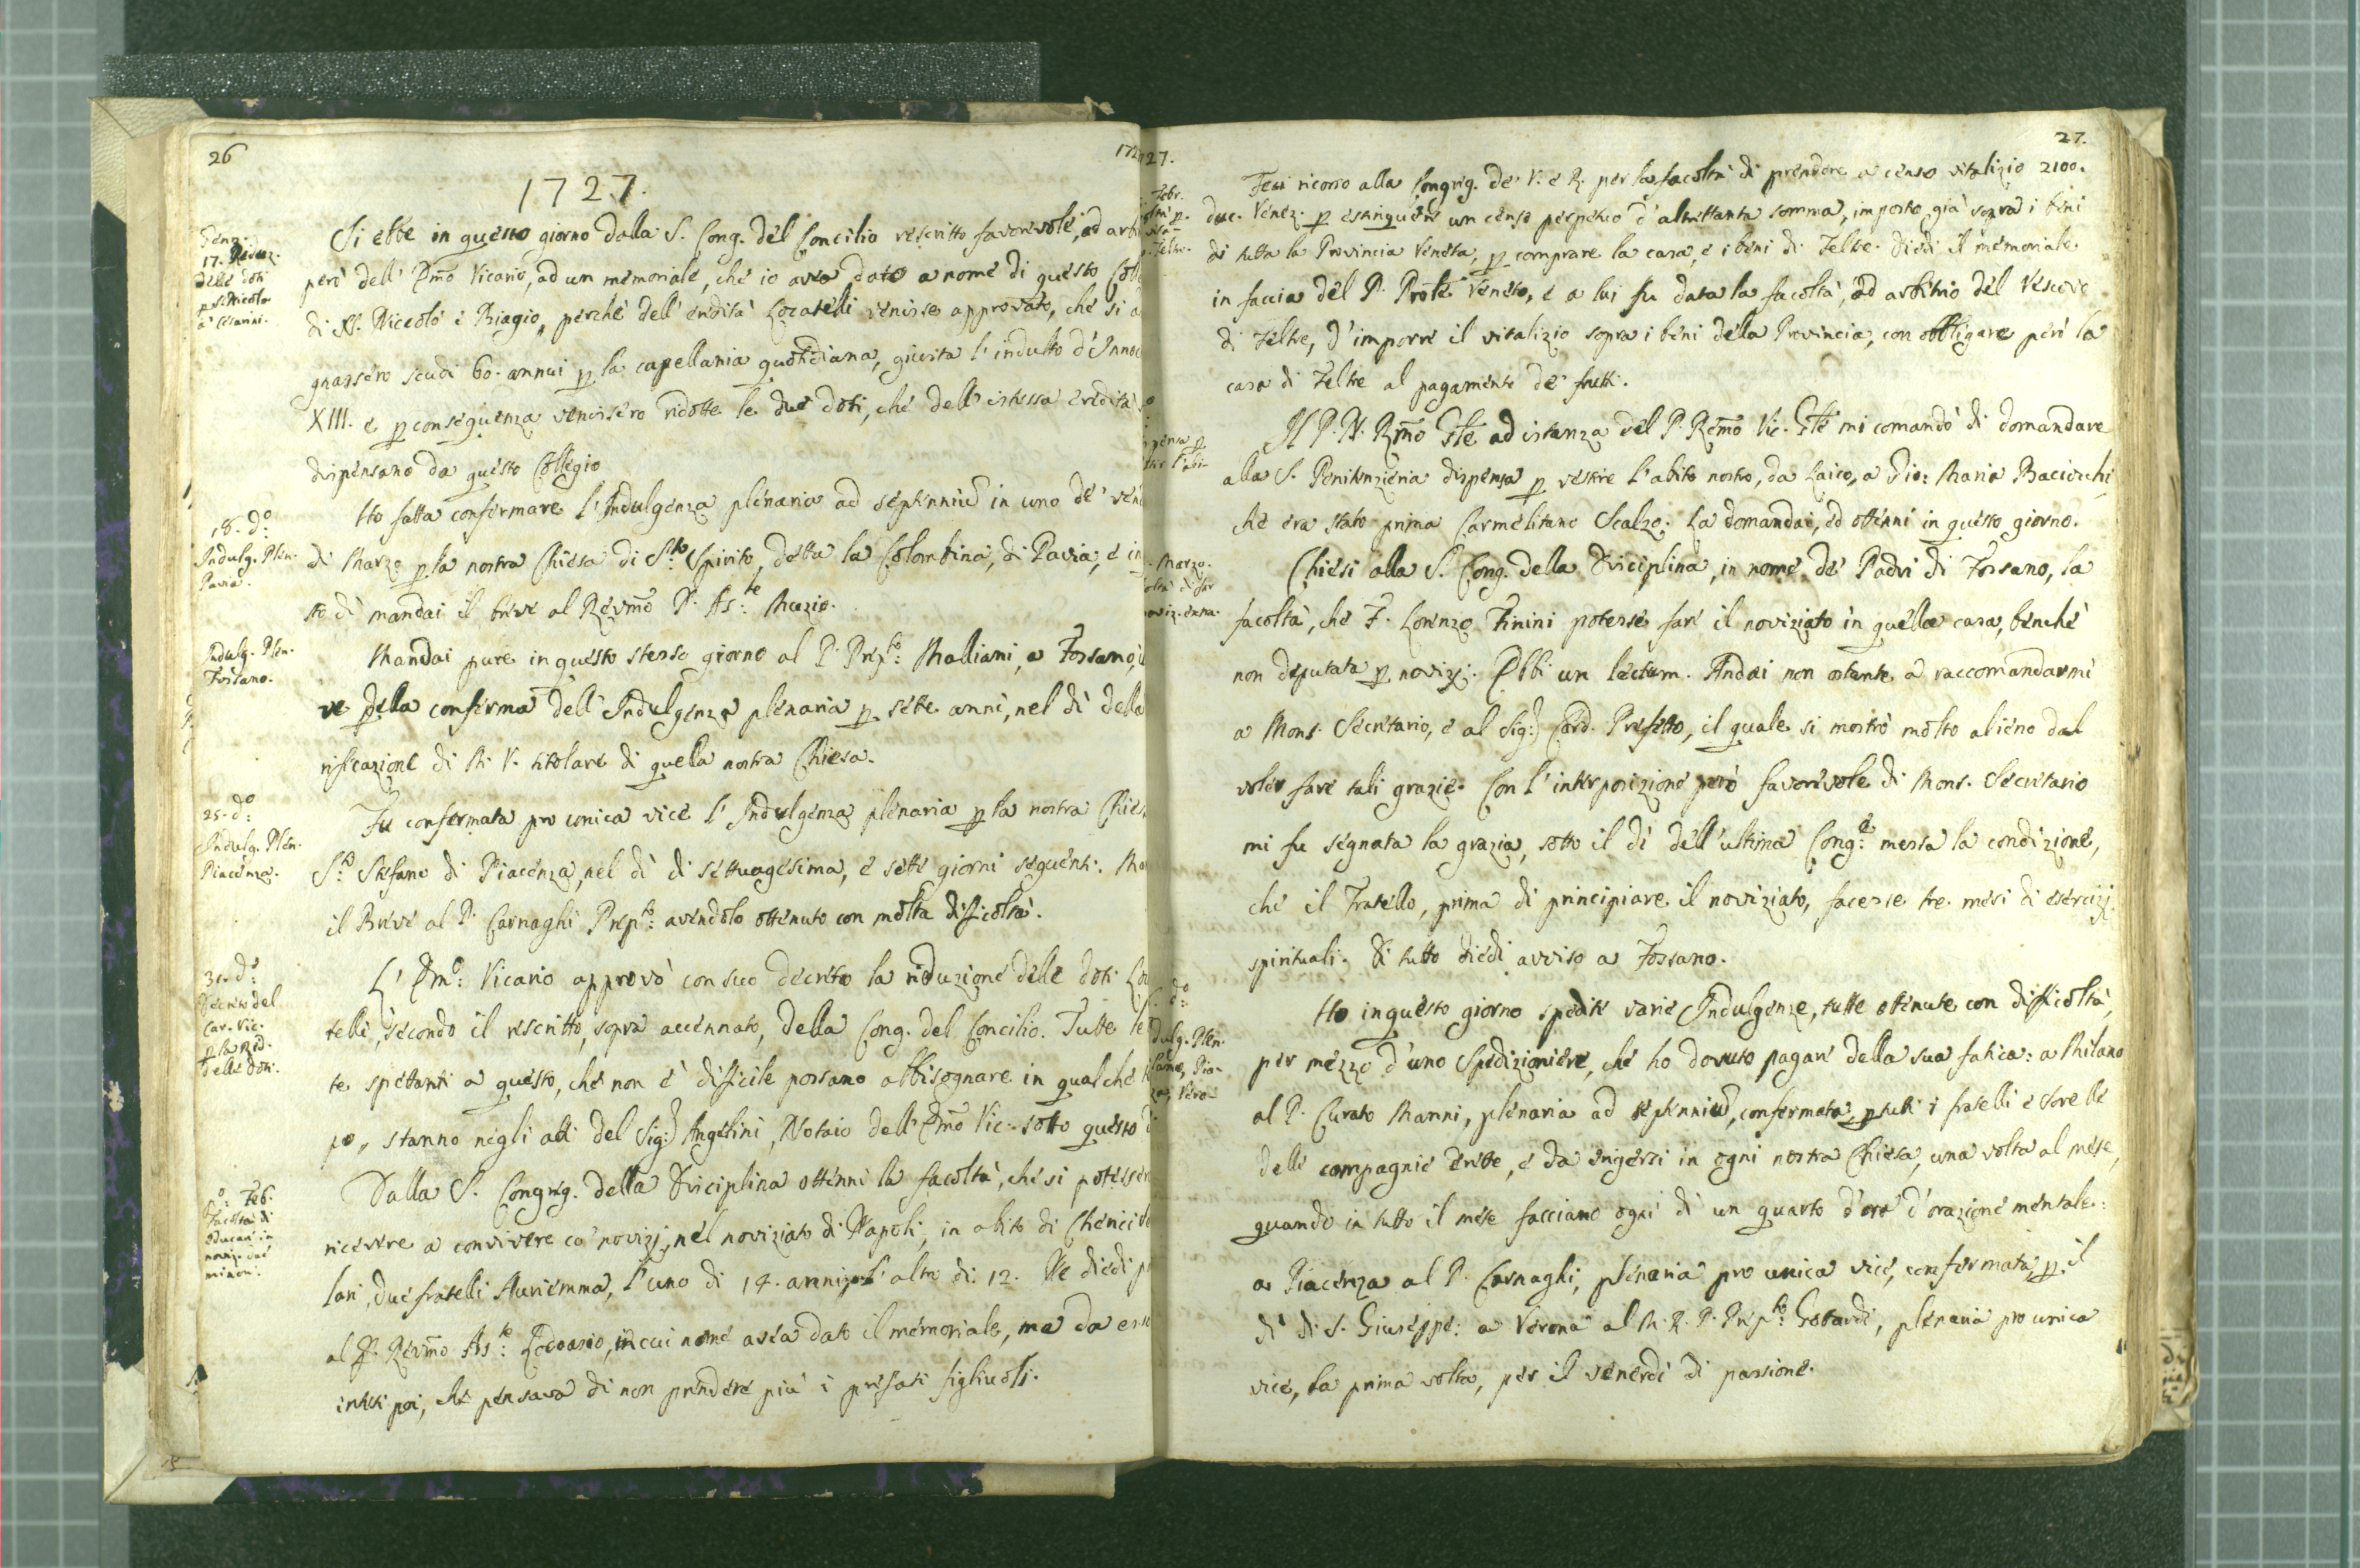 26
1727.
Genn.
17. Reduz.
delle doti
p S. Nicolò
a' Cesarini.
Si ebbe in questo giorno dalla S. Cong. del Concilio rescritto favorevole, ad arbi
però dell' Emo Vicario, ad un memoriale, che io avea dato a nome di questo Coll
di SS. Niccolò e Biagio, perchè dell' eredità Locatelli venisse approvato, che si a
gnassero scudi 60. annui p la capellania quotidiana, giusta l' indulto d' Innoc
XIII. e p conseguenza venissero ridotte le due doti, che dell' istessa eredità s
dispensano da questo Collegio
18. do:
Indulg. Plen.
Pavia.
Ho fatta confermare l' Indulgenza plenaria ad septenniu in uno de' vene
di Marzo p la nostra Chiesa di Sto: Spirito, detta la Colombina, di Pavia, e in
sto dì mandai il breve al Revmo P. Aste: Muzio.
Indulg. Plen.
Fossano.
Mandai pure in questo stesso giorno al P. Prepto: Malliani, a Fossano,
ve della conferma dell' Indulgenza plenaria p sette anni, nel dì della
rificazione di M. V. titolare di quella nostra Chiesa.
25. do:
Indulg. Plen.
Piacenza.
Fu confermata pro unica vice l' Indulgenza plenaria p la nostra Chies
So: Stefano di Piacenza, nel dì di settuagesima, e sette giorni seguenti. Ma
il Breve al P. Carnaghi Prepto: avendolo ottenuto con molta difficoltà.
31. do:
Decreto del
Car. Vic.
p la Rid.
delle Doti.
L' Emo: Vicario approvò con suo decreto la riduzione delle doti Lo
telli, secondo il rescritto, sopra accennato, della Cong. del Concilio. Tutte le
te spettanti a questo, che non è difficile possano abbisognare in qualche t
po, stanno negli atti del Sig: Angelini, Notaio dell' Emo Vic. sotto questo d
Po: Feb.
Facoltà di
educare in
noviz. due
minori.
Dalla S. Congreg. della Disciplina ottenni la facoltà, che si potesser
ricevere a convivere co' novizj, nel noviziato di Napoli, in abito di Cherici
lari, due fratelli Auriemma, l' uno di 14. anni, l' altro di 12. Ne diedi p
al P. Revmo Aste: Lodoasio, in cui nome avea dato il memoriale, ma da ess
intesi poi, che pensava di non prendere più i prefati figliuoli.
1727.
27.
Febr.
Feci ricorso alla Congreg. de' V. e R. per la facoltà di prendere a censo vitalizio 2100.
duc. Venez. p estinguere un censo perpetuo d' altrettanta somma, imposto già sopra i beni
di tutta la Provincia Veneta, p comprare la casa, e i beni di Feltre. Diedi il memoriale
in faccia del P. Prole Veneto, e a lui fu data la facoltà, ad arbitrio del Vescovo
di Feltre, d' imporre il vitalizio sopra i beni della Provincia, con obbligare però la
casa di Feltre al pagamento de' frutti.
pensa p
Il P. N. Rmo Gle ad istanza del P. Remo Vic. Gle mi comandò di domandare
alla S. Penitenzieria dispensa p vestire l' abito nostro, da Laico, a Gio: Maria Baciocchi
che era stato prima Carmelitano Scalzo. La domandai, ed ottenni in questo giorno.
Marzo.
oltà di far
noviz. extra.
Chiesi alla S. Cong. della Disciplina, in nome de' Padri di Fossano, la
facoltà, che F. Lorenzo Finini potesse fare il noviziato in quella casa, benchè
non deputata p novizj. Ebbi un lectum. Andai non ostante a raccomandarmi
a Mons. Secretario, e al Sig: Card. Prefetto, il quale si mostrò molto alieno dal
voler fare tali grazie. Con l' interposizione però favorevole di Mons. Secretario
mi fu segnata la grazia, sotto il dì dell' ultima Conge: messa la condizione,
che il Fratello, prima di principiare il noviziato, facesse tre mesi di esercizj
spirituali. Di tutto diedi avviso a Fossano.
do:
dulg. Plen.
lano, Pia-
za, Vero-
Ho in questo giorno spedite varie Indulgenze, tutte ottenute con difficoltà,
per mezzo d' uno Spedizioniere, che ho dovuto pagare della sua fatica: a Milano
al P. Curato Manni, plenaria ad septenniu, confermata, p tutti i fratelli e sorelle
delle compagnie erette, e da erigersi in ogni nostra Chiesa, una volta al mese,
quando in tutto il mese facciano ogni dì un quarto d' ora d' orazione mentale:
a Piacenza al P. Carnaghi, plenaria pro unica vice, confermata, p il
dì di S. Giuseppe: a Verona al M. R. P. Prepto: Gottardi, plenaria pro unica
vice, la prima volta, per il venerdì di passione.